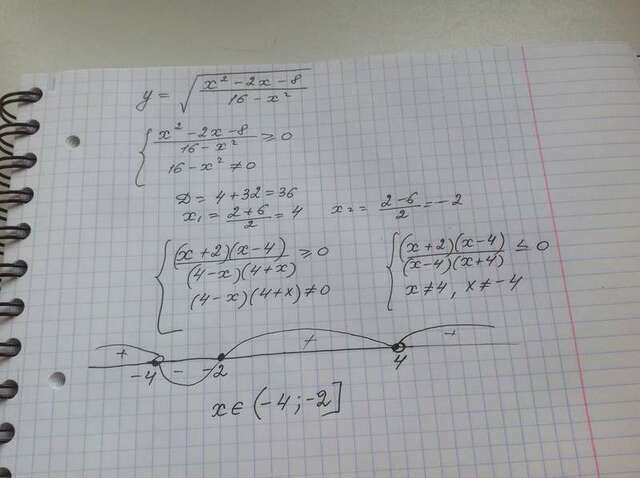 y = √((x² - 2x - 8)/(16 - x²))
{ (x² - 2x - 8)/(16 - x²) ≥ 0
16 - x² ≠ 0
D = 4 + 32 = 36
x₁ = (2+6)/2 = 4 x₂ = (2-6)/2 = -2
{ ((x+2)(x-4))/((4-x)(4+x)) ≥ 0 { ((x+2)(x-4))/((x-4)(x+4)) ≤ 0
(4-x)(4+x) ≠ 0 x ≠ 4, x ≠ -4
+ - + +
-4 -2 4
x ∈ (-4; -2]